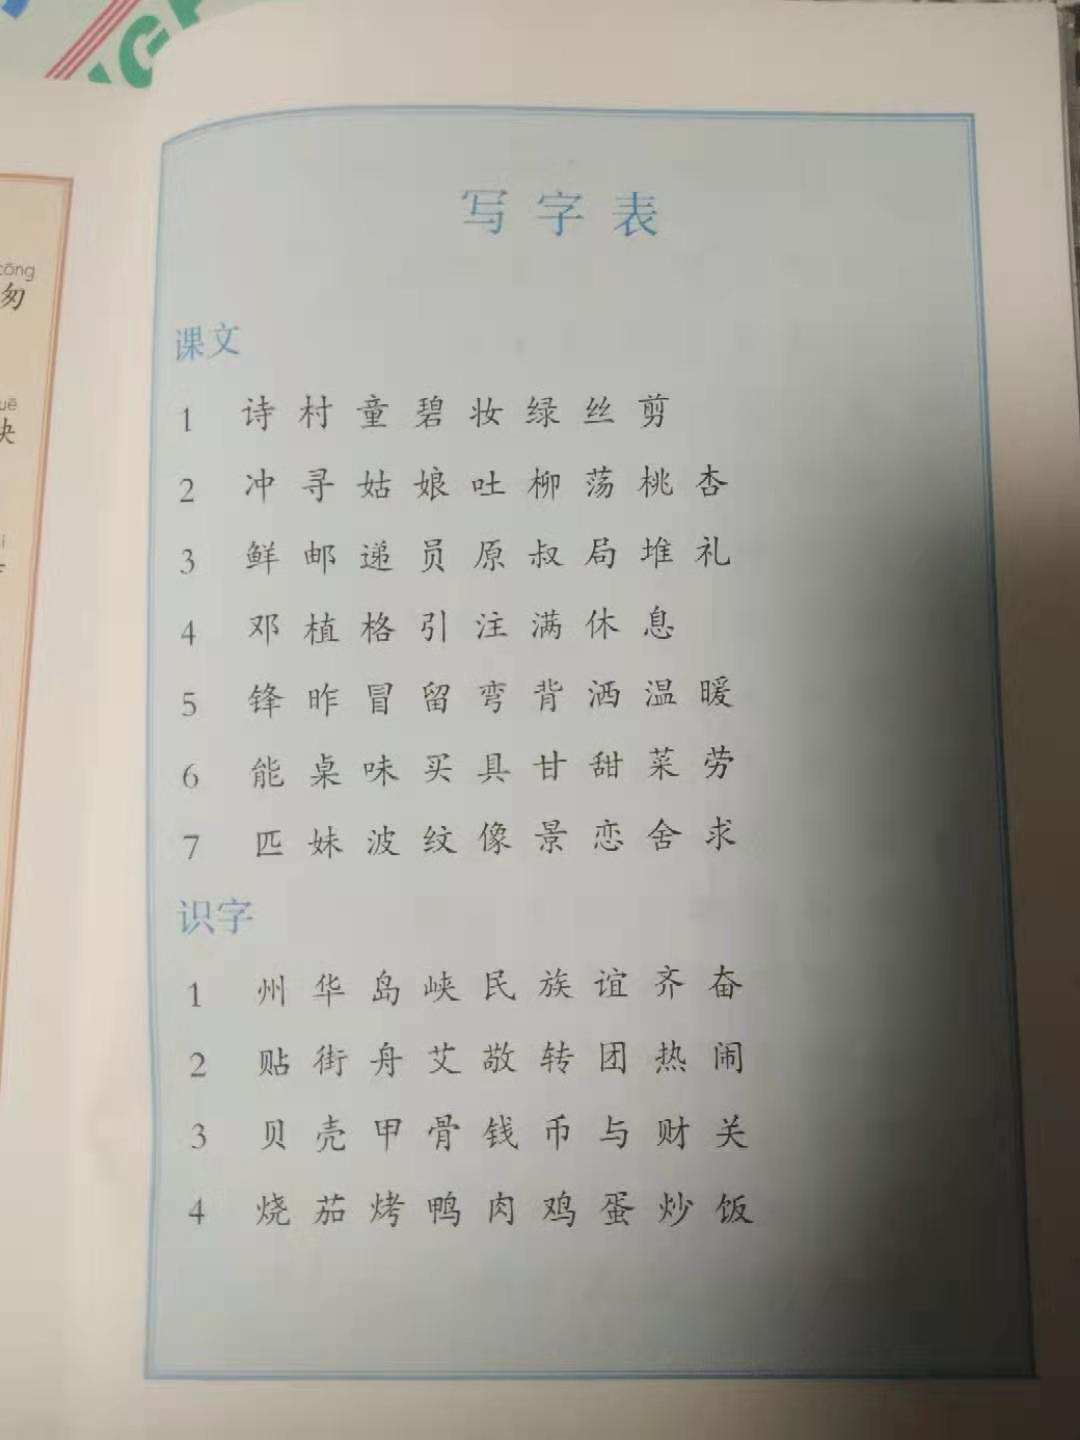 cōng
匆
写字表
课文
1 诗 村 童 碧 妆 绿 丝 剪
2 冲 寻 姑 娘 吐 柳 荡 桃 杏
3 鲜 邮 递 员 原 叔 局 堆 礼
4 邓 植 格 引 注 满 休 息
5 锋 昨 冒 留 弯 背 洒 温 暖
6 能 桌 味 买 具 甘 甜 菜 劳
7 匹 妹 波 纹 像 景 恋 舍 求
识字
1 州 华 岛 峡 民 族 谊 齐 奋
2 贴 街 舟 艾 敬 转 团 热 闹
3 贝 壳 甲 骨 钱 币 与 财 关
4 烧 茄 烤 鸭 肉 鸡 蛋 炒 饭